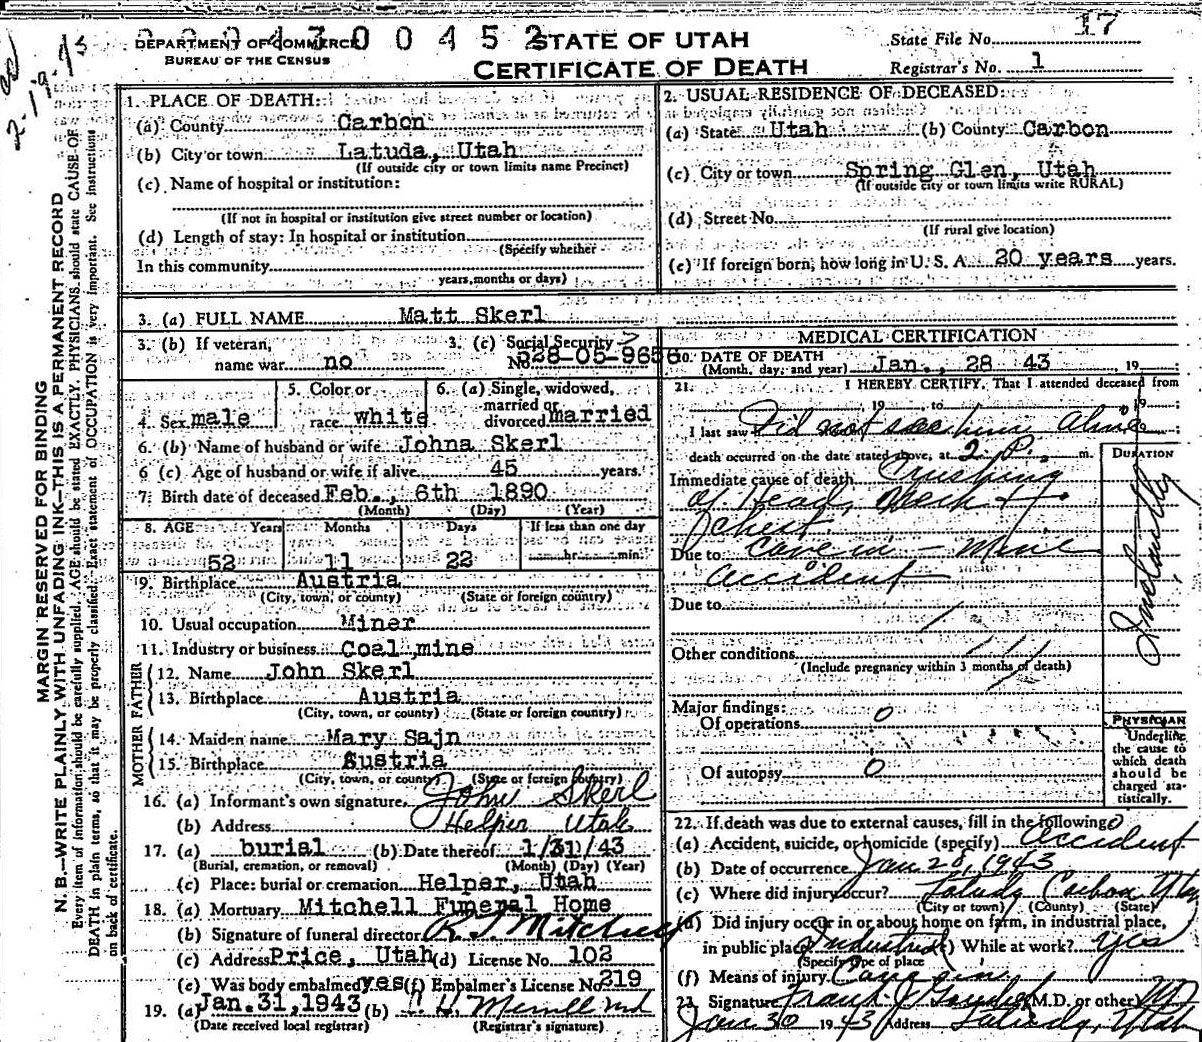 DEPARTMENT OF COMMERCE
BUREAU OF THE CENSUS
00452
STATE OF UTAH
CERTIFICATE OF DEATH
State File No. 17
Registrar's No. 1
MARGIN RESERVED FOR BINDING
N. B.—WRITE PLAINLY WITH UNFADING INK—THIS IS A PERMANENT RECORD
Every item of information should be carefully supplied. AGE should be stated EXACTLY. PHYSICIANS should state CAUSE OF
DEATH in plain terms, so that it may be properly classified. Exact statement of OCCUPATION is very important. See instructions
on back of certificate.
1. PLACE OF DEATH:
(a) County Carbon
(b) City or town Latuda, Utah
(If outside city or town limits name Precinct)
(c) Name of hospital or institution:
(If not in hospital or institution give street number or location)
(d) Length of stay: In hospital or institution
(Specify whether
In this community
years, months or days)
2. USUAL RESIDENCE OF DECEASED:
(a) State Utah (b) County Carbon
(c) City or town Spring Glen, Utah
(If outside city or town limits write RURAL)
(d) Street No.
(If rural give location)
(e) If foreign born, how long in U. S. A. 20 years years.
3. (a) FULL NAME Matt Skerl
3. (b) If veteran, name war no
3. (c) Social Security No. 528-05-9656
4. Sex male
5. Color or race white
6. (a) Single, widowed, married or divorced married
6. (b) Name of husband or wife Johna Skerl
6 (c) Age of husband or wife if alive 45 years.
7. Birth date of deceased Feb., 6th 1890
(Month) (Day) (Year)
8. AGE Years Months Days If less than one day
52 11 22 hr. min.
9. Birthplace Austria
(City, town, or county) (State or foreign country)
10. Usual occupation Miner
11. Industry or business Coal mine
FATHER
12. Name John Skerl
13. Birthplace Austria
(City, town, or county) (State or foreign country)
MOTHER
14. Maiden name Mary Sajn
15. Birthplace Austria
(City, town, or county) (State or foreign country)
16. (a) Informant's own signature John Skerl
(b) Address Helper Utah
17. (a) burial (b) Date thereof 1/31/43
(Burial, cremation, or removal) (Month) (Day) (Year)
(c) Place: burial or cremation Helper, Utah
18. (a) Mortuary Mitchell Funeral Home
(b) Signature of funeral director R. J. Mitchell
(c) Address Price, Utah (d) License No. 102
(e) Was body embalmed yes (f) Embalmer's License No. 219
19. (a) Jan. 31, 1943 (b) Merrill md
(Date received local registrar) (Registrar's signature)
MEDICAL CERTIFICATION
20. DATE OF DEATH
(Month, day, and year) Jan., 28 43, 19
21. I HEREBY CERTIFY, That I attended deceased from
19 , to 19 ;
I last saw Did not see him Alive
death occurred on the date stated above, at 2 P. m.
DURATION
Immediate cause of death Crushing
of Head, Neck +
Chest
Due to Cave in - Mine
Accident
Instantly
Due to
Other conditions
(Include pregnancy within 3 months of death)
Major findings:
Of operations 0
Of autopsy 0
PHYSICIAN
Underline
the cause to
which death
should be
charged sta-
tistically.
22. If death was due to external causes, fill in the following
(a) Accident, suicide, or homicide (specify) Accident
(b) Date of occurrence Jan 28, 1943
(c) Where did injury occur? Latuda Carbon Utah
(City or town) (County) (State)
(d) Did injury occur in or about home on farm, in industrial place,
in public place Industrial (e) While at work? Yes
(Specify type of place
(f) Means of injury Cave in
23. Signature Frank J. (M.D. or other) MD
Jan 30 1943 Address Latuda, Utah